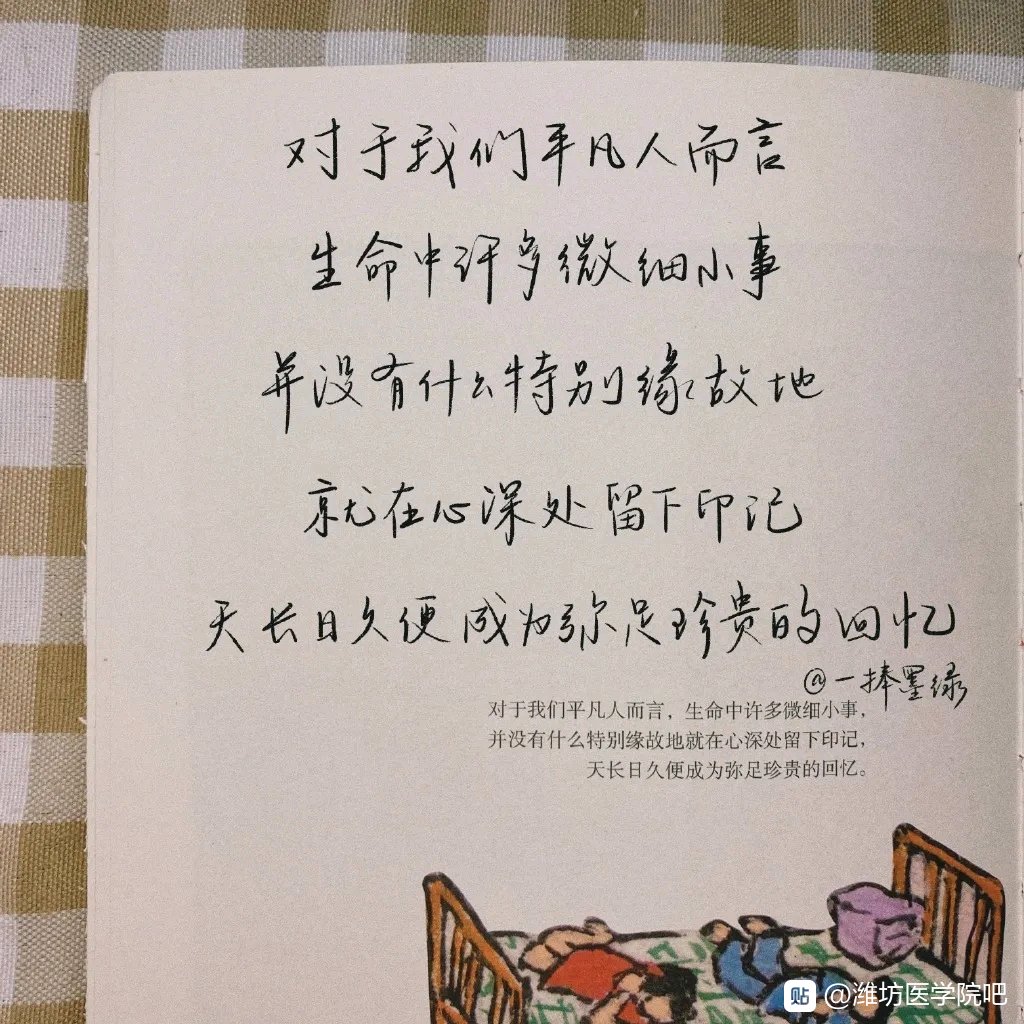 对于我们平凡人而言
生命中许多微细小事
并没有什么特别缘故地
就在心深处留下印记
天长日久便成为弥足珍贵的回忆
@一捧墨绿
对于我们平凡人而言，生命中许多微细小事，
并没有什么特别缘故地就在心深处留下印记，
天长日久便成为弥足珍贵的回忆。
贴 @潍坊医学院吧